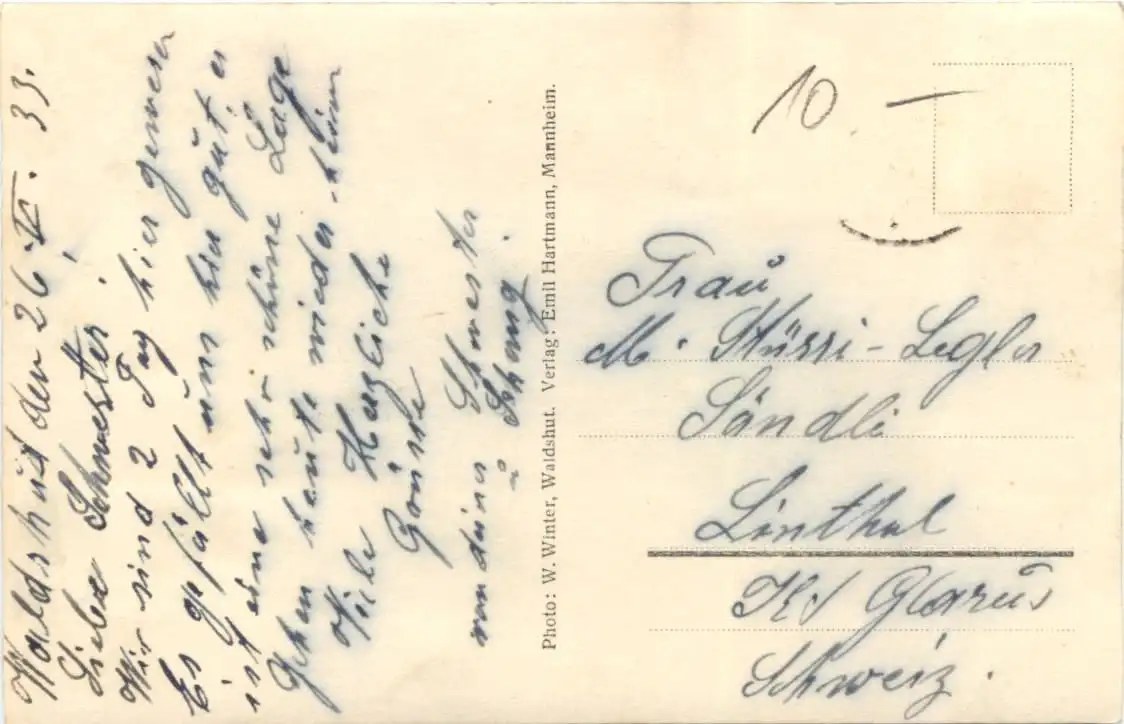 Waldshut den 26. VI. 33.
Liebe Schwester!
Wir sind 2 Tag hier gewesen
Es gefällt uns hier gut es
ist eine sehr schöne Lage
gehen heute wieder heim
Viele Herzliche
Grüsse
von deiner Schwester
Photo: W. Winter, Waldshut. Verlag: Emil Hartmann, Mannheim.
10. —
Frau
M. Stüssi-Legler
Sändli
Linthal
Kt Glarus
Schweiz.